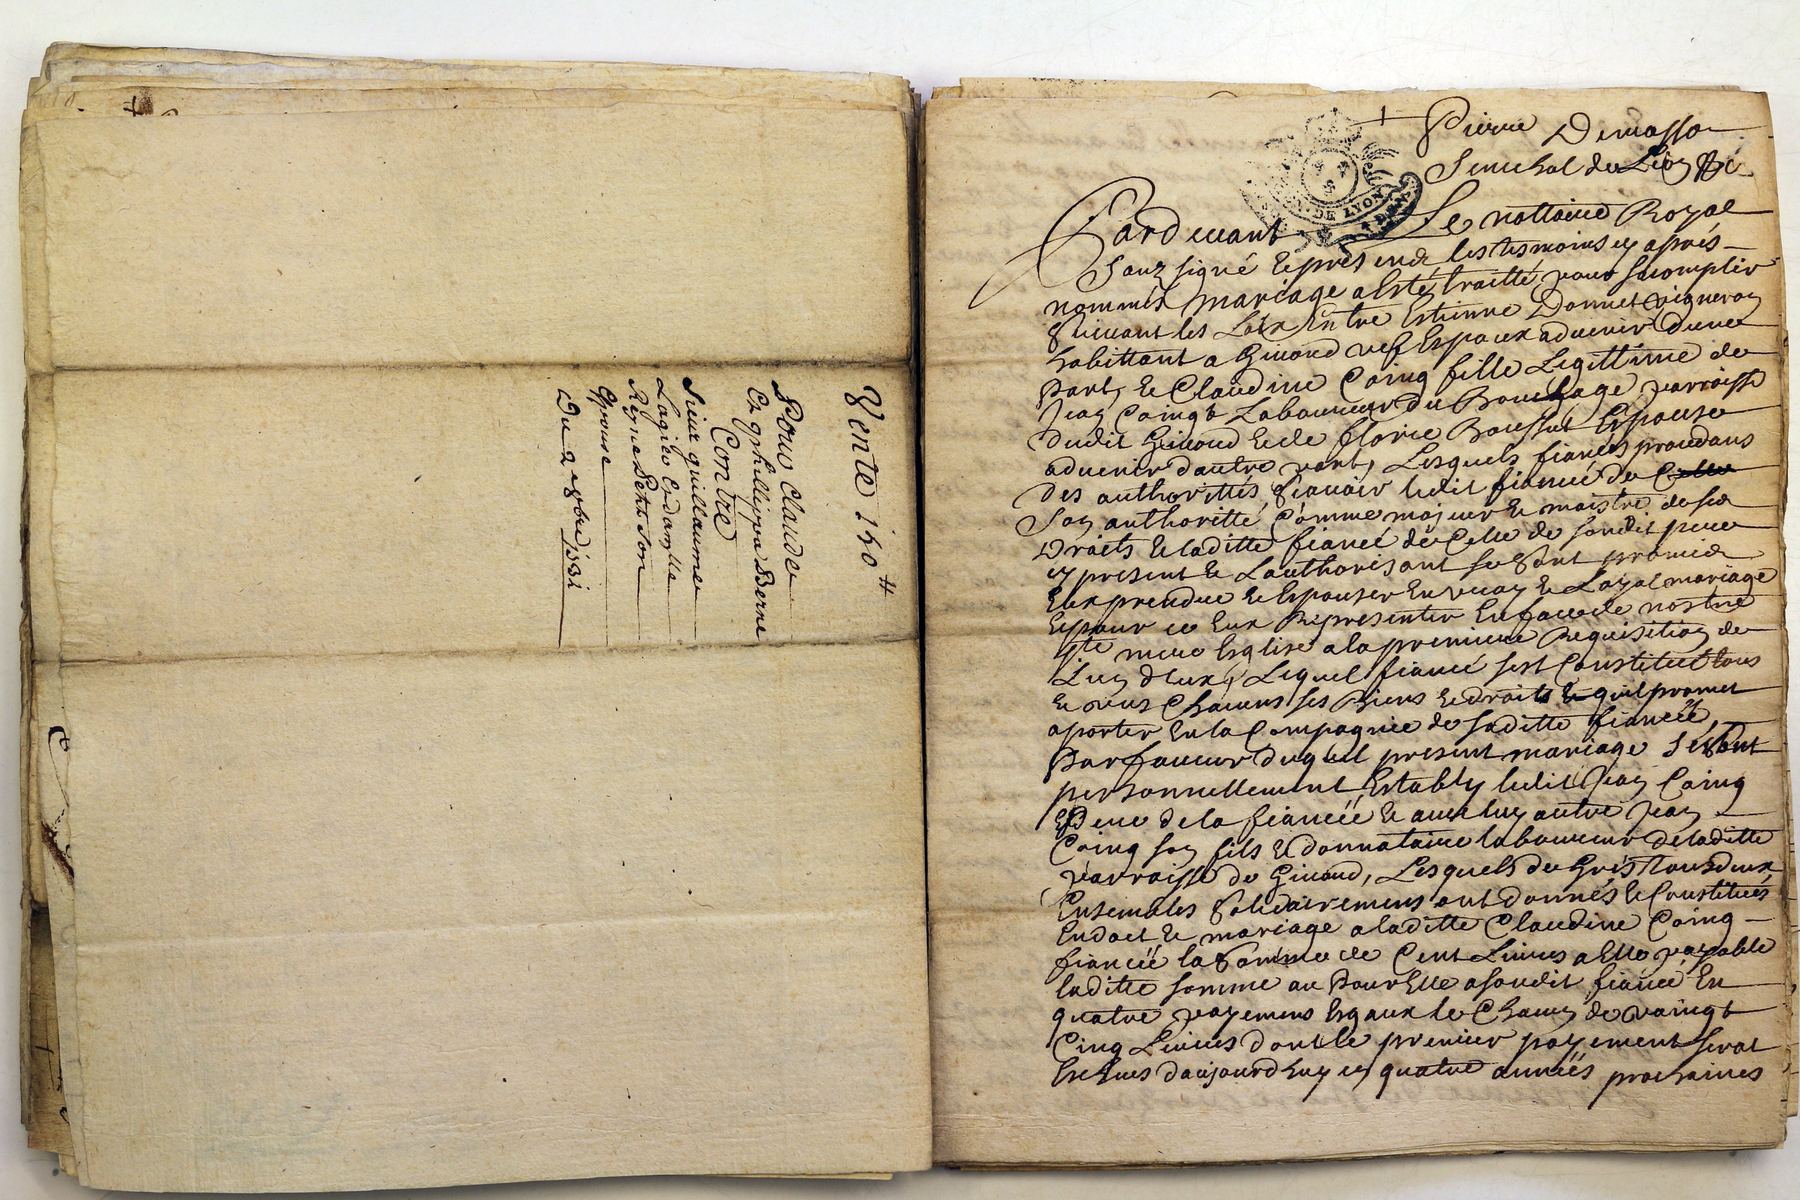 Vente 140 ₶
Pour Claude
Et philippa Berne
Contre
Sieur guillaume
Lagier Et damlle
Reyne Petit son
Epouse
Du 2 xbre 1731
Pierre Demasso
Senechal de Lion &c
Pardevant Le nottaire Royal
Souz signé Et present les tesmoins cy apres
nommés mariage a Esté traitté pour sacomplir
suivant les Loix Entre Estienne Donnet vigneron
habittant a Givord vef Espoux advenir dune
Part, Et Claudine Coing fille Legittime de
Jean Coingt Laboureur Du Bouchage parroisse
dudit Givord Et de florie Rousset Espouse
advenir dautre part, Lesquels fiancés procedans
des authorittés sçavoir ledit fiancé De
son authoritté Comme majeur Et maistre de ses
Droits Et laditte fiancée de Celle de sondit pere
cy present Et Lauthorisant se sont promis
Eux prendre Et Espouser En vray Et Loyal mariage
Et pour ce Eux Representer En face de nostre
ste mere Esglise a la premiere Requisition de
Lun deux, Lequel fiancé sest Constitué tous
Et uns Chacuns ses Biens Et droits quil promet
aporter En la Compagnie de saditte fiancée,
Par faveur duquel present mariage se sont
personnellement Estably ledit Jean Coing
Pere de la fiancée Et avec luy autre Jean
Coing son fils Et donnataire laboureur de laditte
parroisse de Givord, Lesquels de Grés tous deux
Ensembles solidairement ont donnés Et Constitués
En dot Et mariage a laditte Claudine Coing
fiancée la somme de Cent Livres a Elle payable
laditte somme ou Pour Elle a sondit fiancé En
quatre payemens Esgaux le Chacun de vaingt
Cinq Livres dont le premier payement serat
Escheus daujourdhuy en quatre années prochaines